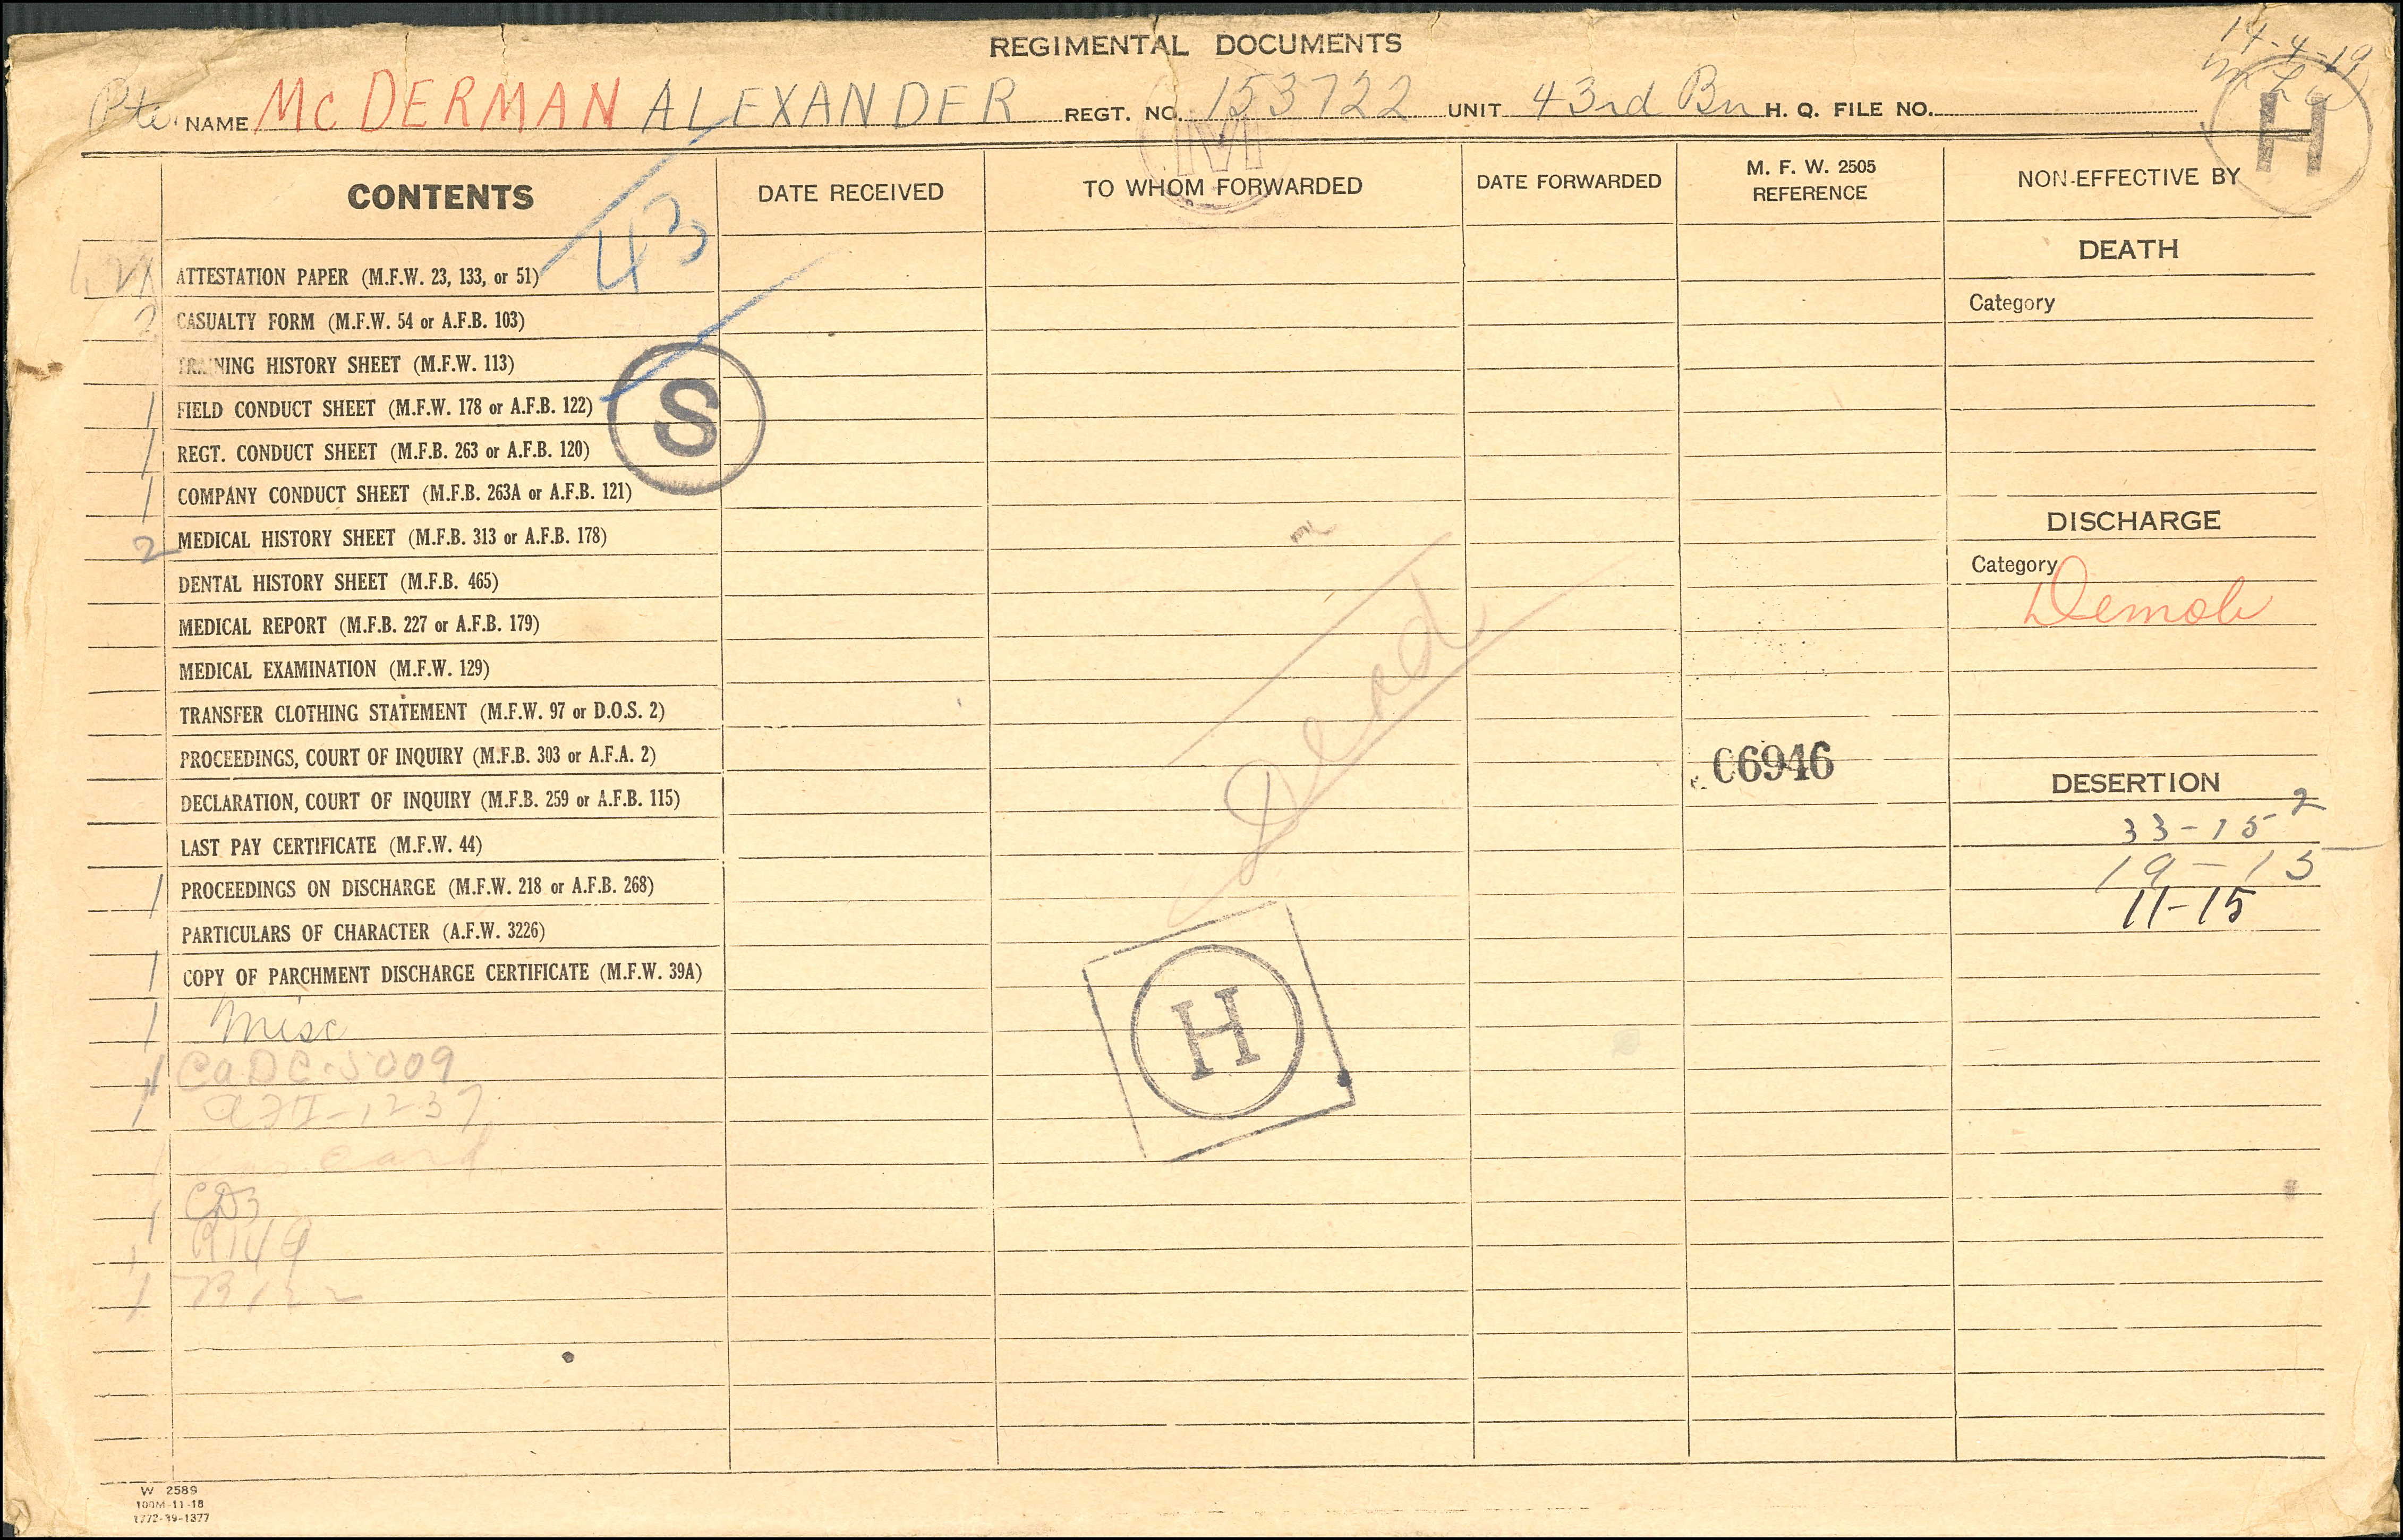 REGIMENTAL DOCUMENTS
14-4-19
Pte. NAME McDERMAN ALEXANDER REGT. NO. 153722 UNIT 43rd Bn H. Q. FILE NO.
H
M
CONTENTS DATE RECEIVED TO WHOM FORWARDED DATE FORWARDED M. F. W. 2505 REFERENCE NON-EFFECTIVE BY
43
DEATH
ATTESTATION PAPER (M.F.W. 23, 133, or 51)
Category
2 CASUALTY FORM (M.F.W. 54 or A.F.B. 103)
TRAINING HISTORY SHEET (M.F.W. 113)
1 FIELD CONDUCT SHEET (M.F.W. 178 or A.F.B. 122)
S
1 REGT. CONDUCT SHEET (M.F.B. 263 or A.F.B. 120)
1 COMPANY CONDUCT SHEET (M.F.B. 263A or A.F.B. 121)
DISCHARGE
2 MEDICAL HISTORY SHEET (M.F.B. 313 or A.F.B. 178)
Category
Demob
DENTAL HISTORY SHEET (M.F.B. 465)
MEDICAL REPORT (M.F.B. 227 or A.F.B. 179)
MEDICAL EXAMINATION (M.F.W. 129)
Dead
TRANSFER CLOTHING STATEMENT (M.F.W. 97 or D.O.S. 2)
PROCEEDINGS, COURT OF INQUIRY (M.F.B. 303 or A.F.A. 2)
C6946
DESERTION
DECLARATION, COURT OF INQUIRY (M.F.B. 259 or A.F.B. 115)
33-15 2
LAST PAY CERTIFICATE (M.F.W. 44)
19-15
1 PROCEEDINGS ON DISCHARGE (M.F.W. 218 or A.F.B. 268)
11-15
PARTICULARS OF CHARACTER (A.F.W. 3226)
1 COPY OF PARCHMENT DISCHARGE CERTIFICATE (M.F.W. 39A)
1 Misc
H
CADC-5009
1 AFI-1237
card
1 CD3
R149
1 B122
W 2589
100M-11-18
1772-39-1377